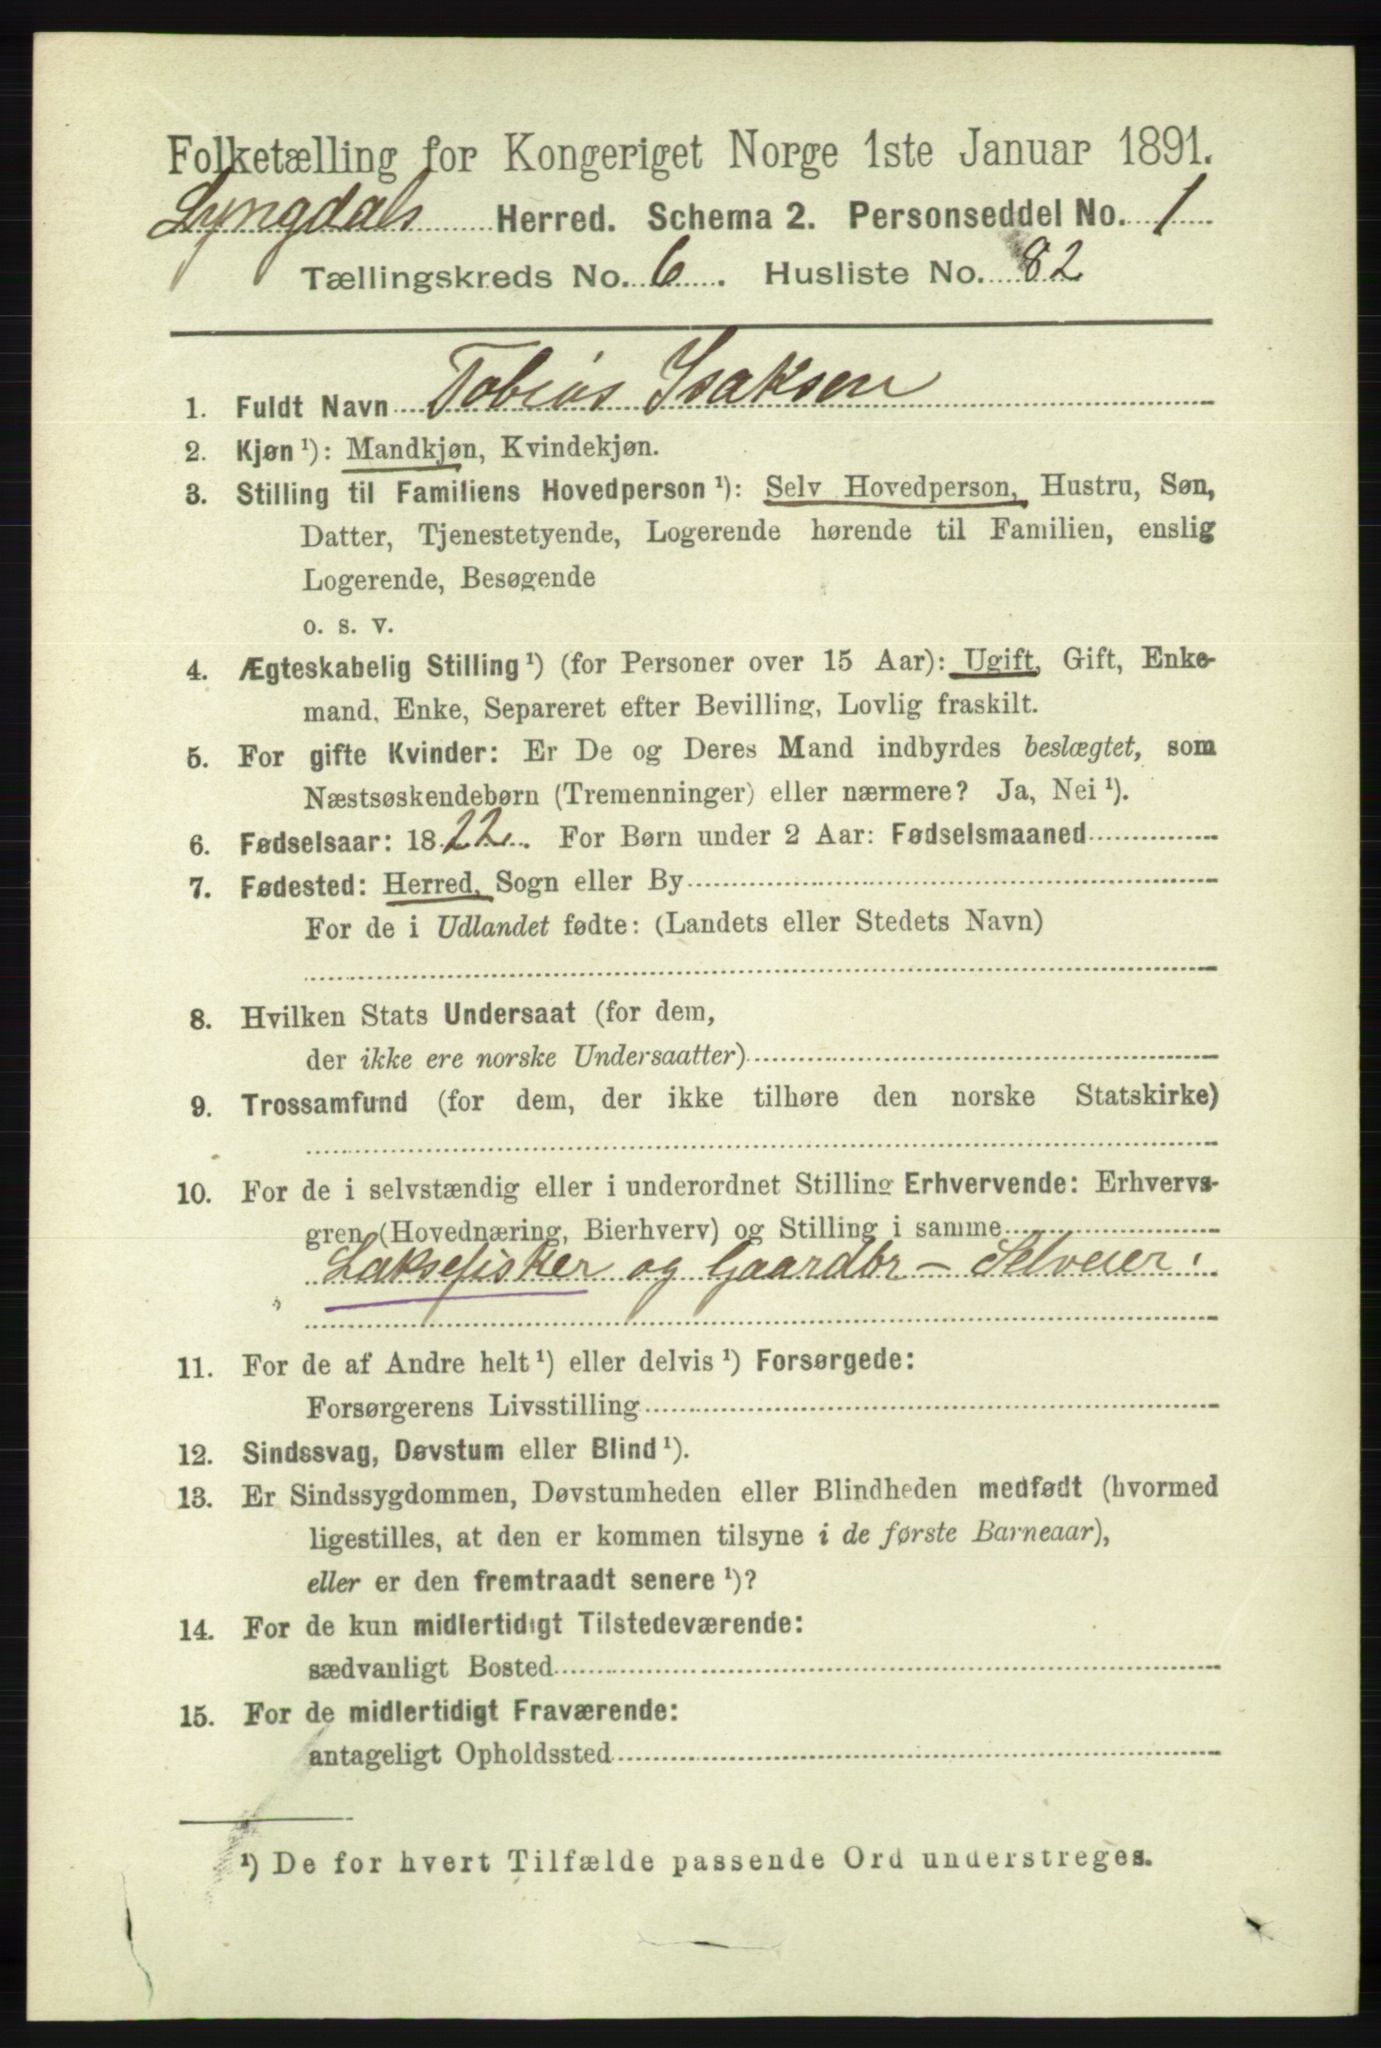 Folketælling for Kongeriget Norge 1ste Januar 1891.
Lyngdals Herred. Schema 2. Personseddel No. 1
Tællingskreds No. 6. Husliste No. 82
1. Fuldt Navn Tobias Isaksen
2. Kjøn ¹): Mandkjøn, Kvindekjøn.
3. Stilling til Familiens Hovedperson ¹): Selv Hovedperson, Hustru, Søn,
Datter, Tjenestetyende, Logerende hørende til Familien, enslig
Logerende, Besøgende
o. s. v.
4. Ægteskabelig Stilling ¹) (for Personer over 15 Aar): Ugift, Gift, Enke-
mand, Enke, Separeret efter Bevilling, Lovlig fraskilt.
5. For gifte Kvinder: Er De og Deres Mand indbyrdes beslægtet, som
Næstsøskendebørn (Tremenninger) eller nærmere? Ja, Nei ¹).
6. Fødselsaar: 1822. For Børn under 2 Aar: Fødselsmaaned
7. Fødested: Herred, Sogn eller By
For de i Udlandet fødte: (Landets eller Stedets Navn)
8. Hvilken Stats Undersaat (for dem,
der ikke ere norske Undersaatter)
9. Trossamfund (for dem, der ikke tilhøre den norske Statskirke)
10. For de i selvstændig eller i underordnet Stilling Erhvervende: Erhvervs-
gren (Hovednæring, Bierhverv) og Stilling i samme
Laksefisker og Gaardbr - Selveier.
11. For de af Andre helt ¹) eller delvis ¹) Forsørgede:
Forsørgerens Livsstilling
12. Sindssvag, Døvstum eller Blind ¹).
13. Er Sindssygdommen, Døvstumheden eller Blindheden medfødt (hvormed
ligestilles, at den er kommen tilsyne i de første Barneaar),
eller er den fremtraadt senere ¹)?
14. For de kun midlertidigt Tilstedeværende:
sædvanligt Bosted
15. For de midlertidigt Fraværende:
antageligt Opholdssted
¹) De for hvert Tilfælde passende Ord understreges.